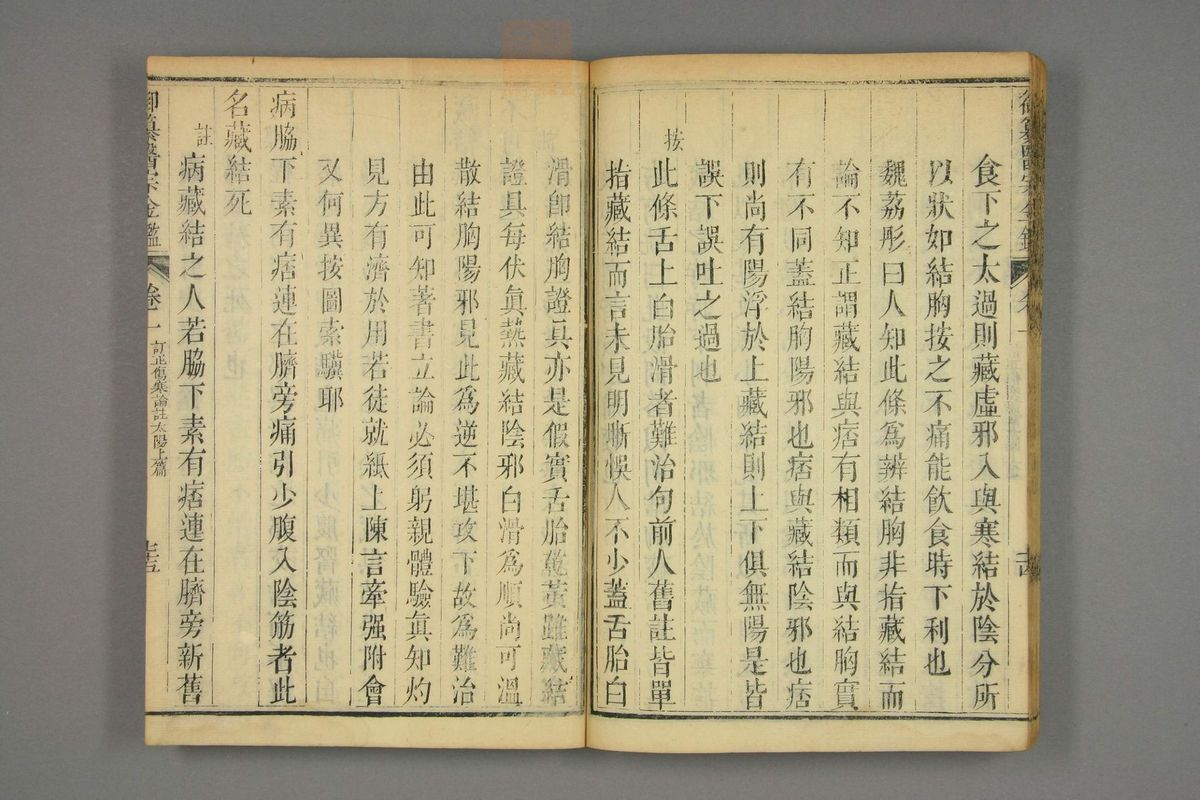 食下之太過則藏虛邪入與寒結於陰分所
以狀如結胸按之不痛能飲食時下利也
魏荔彤曰人知此條爲辨結胸非指藏結而
論不知正謂藏結與痞有相類而與結胸實
有不同蓋結胸陽邪也痞與藏結陰邪也痞
則尚有陽浮於上藏結則上下俱無陽是皆
誤下誤吐之過也
按 此條舌上白胎滑者難治句前人舊註皆單
指藏結而言未見明晣悞人不少蓋舌胎白
滑卽結胸證具亦是假實舌胎乾黃雖藏結
證具每伏眞熱藏結陰邪白滑爲順尚可溫
散結胸陽邪見此爲逆不堪攻下故爲難治
由此可知著書立論必須躬親體驗眞知灼
見方有濟於用若徒就紙上陳言牽强附會
又何異按圖索驥耶
病脇下素有痞連在臍旁痛引少腹入陰筋者此
名藏結死
註 病藏結之人若脇下素有痞連在臍旁新舊
御纂醫宗金鑑 卷一 訂正傷寒論註太陽上篇